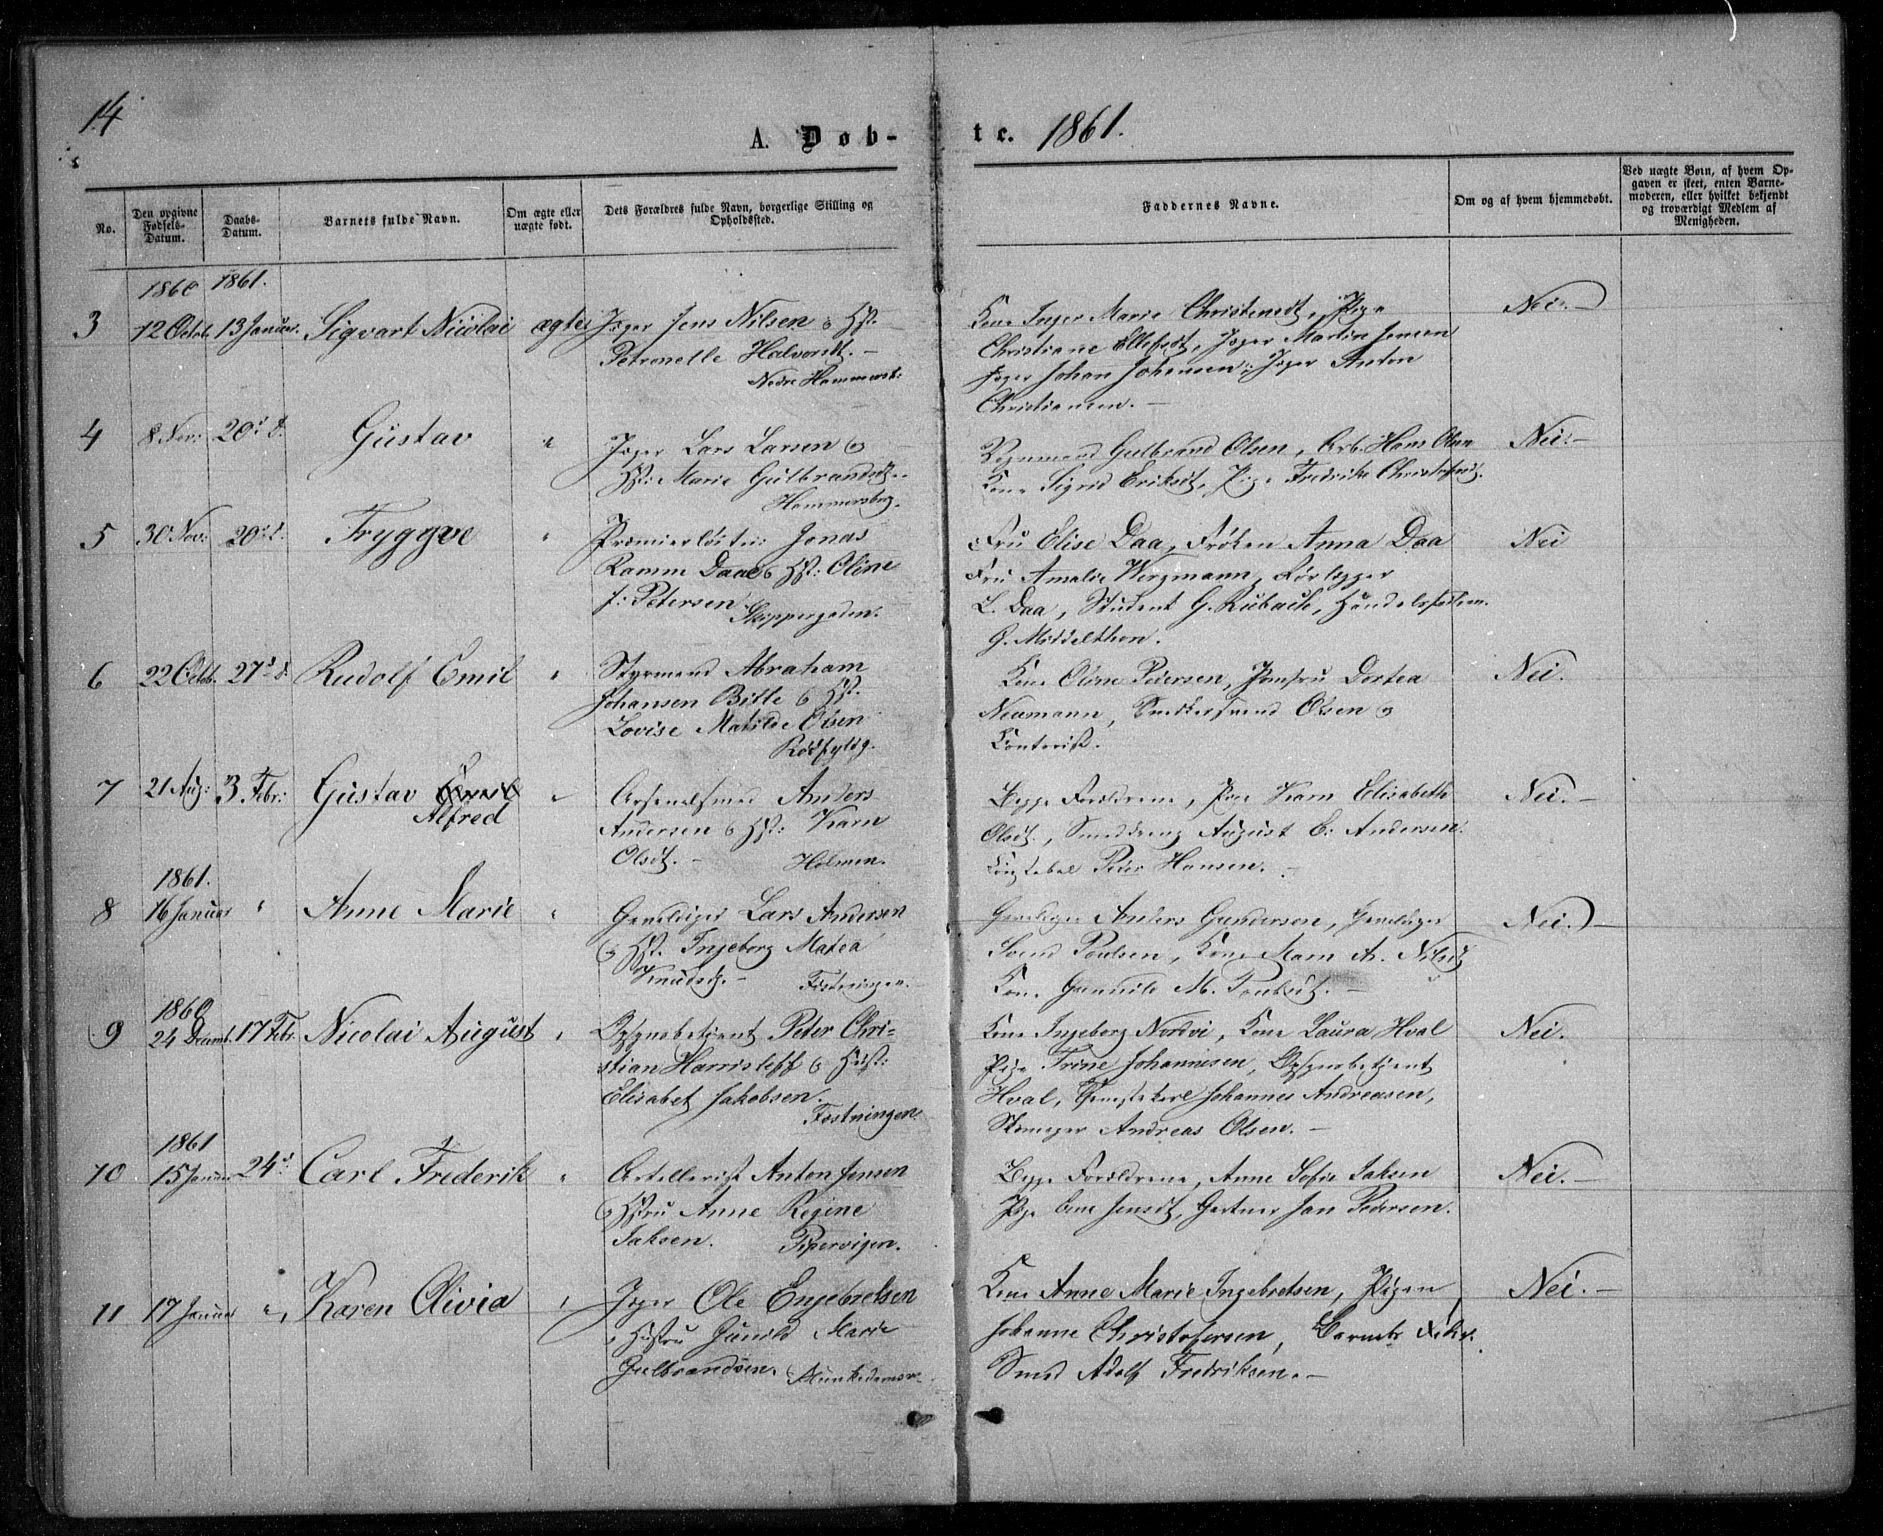 14
A. Døb-
te. 1861.
No.
Den opgivne Fødsels-Datum.
Daabs-Datum.
Barnets fulde Navn.
Om ægte eller uægte født.
Dets Forældres fulde Navn, borgerlige Stilling og Opholdssted.
Faddernes Navne.
Om og af hvem hjemmedøbt.
Ved uægte Børn, af hvem Opgaven er skeet, enten Barnemoderen, eller hvilket bekjendt og troværdigt Medlem af Menigheden.
1860 1861.
3 12 Octob. 13 Januar. Sigvart Nicolai ægte Jæger Jens Nilsen & Hst:
Petronelle Halvorsdt. –
Nedre Hammersb:
Kone Inger Marie Christensdt, Pige
Christiane Ellefsdt, Jæger Martin Jensen
Jæger Johan Johansen, Jæger Anton
Christiansen. –
Nei. –
4 8 Nov: 20 d. Gustav " Jæger Lars Larsen &
Hst: Marie Gulbrandsdt.
Hammersborg.
Vognmand Gulbrand Olsen, Arb. Hans Olsen
Kone Sigrid Eriksdt, Pige Fredrikke Christofersdt.
Nei. –
5 30 Nov: 20 d. Tryggve " Premierløitn: Jonas
Ramm Daae & Hst: Oline
f: Petersen.
Skippergaden.
Fru Elise Daa, Frøken Anna Daa
Fru Amalie Wergmann, Forlægger
L. Daa, Student G. Rubach, Handelsfuldm.
G. Middelthon.
Nei
6 22 Octob. 27 d. Rudolf Emil " Styrmand Abraham
Johansen Bille & Hst:
Lovise Matilde Olsen
Rødfyldg.
Kone Oline Pedersen, Jomfru Dortea
Neumann, Snedkersvend Olsen &
Contorist.
Nei.
7 21 Aug: 3 Febr: Gustav
Alfred
" Arsenalsmed Anders
Andersen & Hst: Karn
Olsdt. – Holmen.
Begge Forældrene, Pige Karn Elisabeth
Olsdt., Smeddreng August C. Andersen.
Konstabel Peder Hansen.
Nei. –
1861.
8 16 Januar " Anne Marie " Gevaldiger Lars Andersen
& Hst. Ingeborg Matea
Knudsdt. – Fæstningen.
Gevaldiger Anders Gundersen, Gevaldiger
Svend Poulsen, Kone Maren A. Nilsdt
Kone Gunnild M.
Nei. –
1860
9 24 Decemb. 17 Febr. Nicolai August " Opsynsbetjent Peter Chri-
stian Harrisleff & Hust:
Elisabet Jakobsen.
Fæstningen.
Kone Ingeborg Nordvi, Kone Laura Hval
Pige Trine Johannesen, Opsynsbetjent
Hval, Tjenestekarl Johannes Andreasen,
Skomager Andreas Olsen. –
Nei.
1861
10 15 Januar 24 d. Carl Frederik " Artellerist Anton Jensen
& Hstru Anne Regine
Isaksen. Pipervigen.
Begge Forældrene, Anne Sofie Isaksen
Pige Ene Jensdt, Gartner Jan Pedersen.
Nei. –
11 17 Januar " Karen Olivia " Jæger Ole Engebretsen
& Hustru Gunild Marie
Gulbrandsen. Munkedamsv.
Kone Anne Marie Ingebretsen, Pigen
Johanne Christofersen, Barnets Fader.
Smed Adolf Fredriksen. –
Nei. –